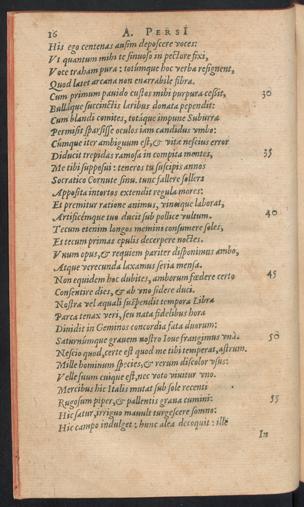 16 A. PERSI
His ego centenas ausim deposcere voces:
Vt quantum mihi te sinuoso in pectore fixi,
Voce traham pura: totúmque hoc verba resignent,
Quod latet arcana non enarrabile fibra.
Cum primum pauido custos mihi purpura cessit, 30
Bullàque succinctis laribus donata pependit:
Cum blandi comites, totáque impune Suburra
Permisit sparsisse oculos iam candidus vmbo:
Cúmque iter ambiguum est, & vitæ nescius error
Diducit trepidas ramosa in compita mentes, 35
Me tibi supposui: teneros tu suscipis annos
Socratico Cornute sinu. tunc fallere sollers
Apposita intortos extendit regula mores:
Et premitur ratione animus, vincíque laborat,
Artificémque tuo ducit sub pollice vultum. 40
Tecum etenim longos memini consumere soles,
Et tecum primas epulis decerpere noctes.
Vnum opus, & requiem pariter disponimus ambo,
Atque verecunda laxamus seria mensa.
Non equidem hoc dubites, amborum fœdere certo 45
Consentire dies, & ab vno sidere duci.
Nostra vel æquali suspendit tempora Libra
Parca tenax veri, seu nata fidelibus hora
Diuidit in Geminos concordia fata duorum:
Saturnúmque grauem nostro Ioue frangimus vnà. 50
Nescio quod, certe est quod me tibi temperat, astrum.
Mille hominum species, & rerum discolor vsus:
Velle suum cuique est, nec voto viuitur vno.
Mercibus hic Italis mutat sub sole recenti
Rugosum piper, & pallentis grana cumini: 55
Hic satur, irriguo mauult turgescere somno:
Hic campo indulget: hunc alea decoquit: ille
In